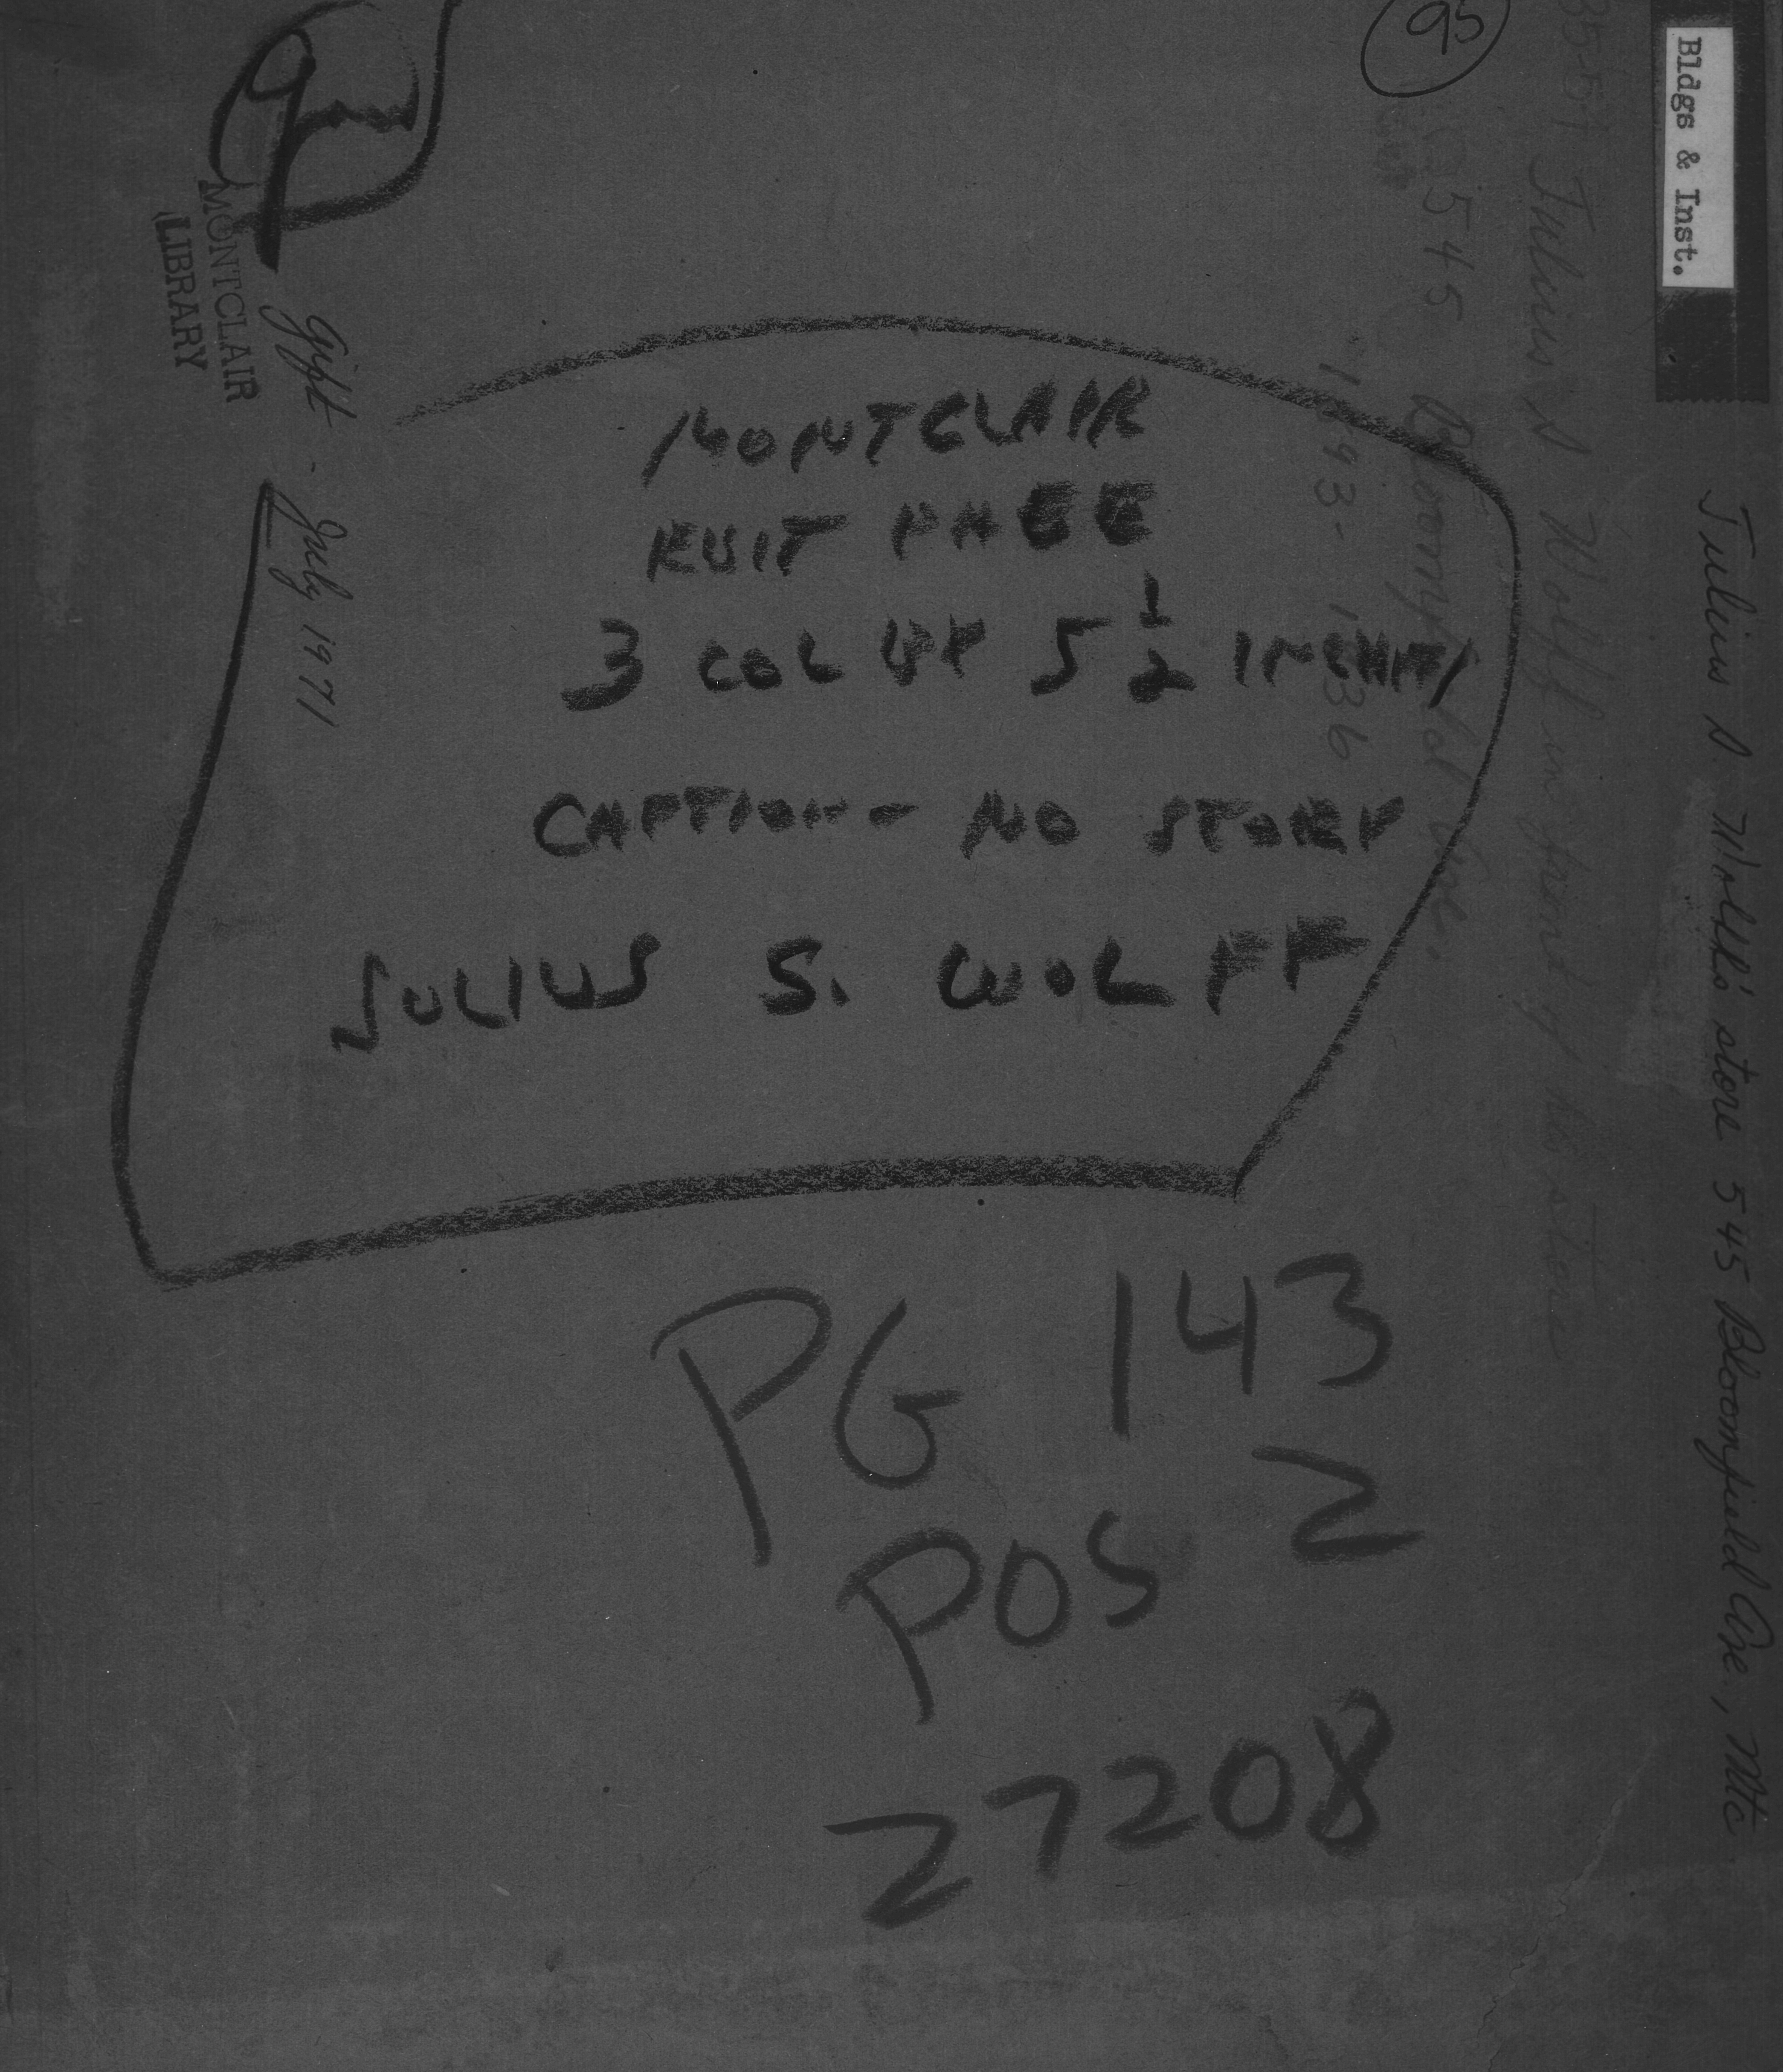 95
Bldgs & Inst.
Julius S. Wolff's store 545 Bloomfield Ave., Mtc
Julius S. Wolff in front of his store
545 Bloomfield Ave.
MONTCLAIR
LIBRARY
gift - July 1971
MONTCLAIR
3 COL BY 5 1/2 INCHES
CAPTION - NO STORY
JULIUS S. WOLFF
PG 143
POS 2
27208